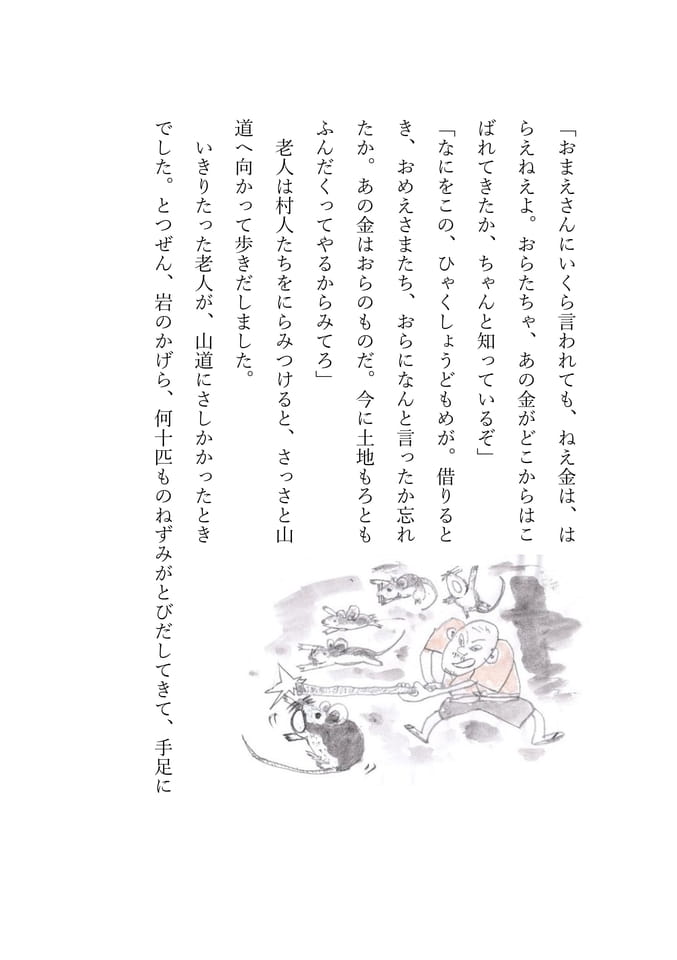 「おまえさんにいくら言われても、ねえ金は、は
らえねえよ。おらたちゃ、あの金がどこからはこ
ばれてきたか、ちゃんと知っているぞ」
「なにをこの、ひゃくしょうどもめが。借りると
き、おめえさまたち、おらになんと言ったか忘れ
たか。あの金はおらのものだ。今に土地もろとも
ふんだくってやるからみてろ」
老人は村人たちをにらみつけると、さっさと山
道へ向かって歩きだしました。
いきりたった老人が、山道にさしかかったとき
でした。とつぜん、岩のかげら、何十匹ものねずみがとびだしてきて、手足に